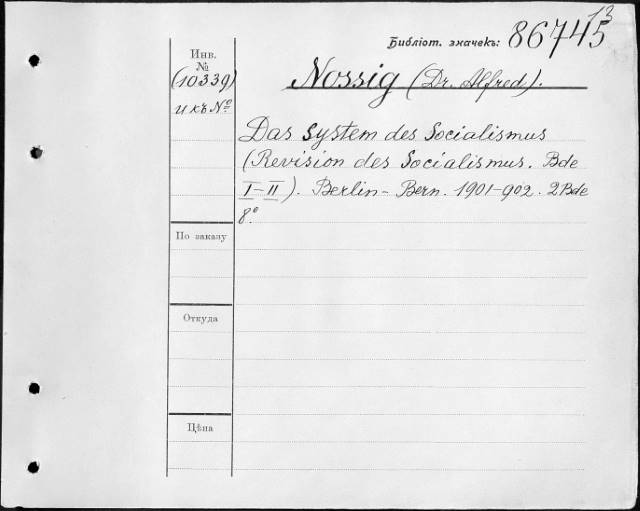 13
Библіот. значекъ: 86745
Инв.
№
(10339)
и къ №
Nossig (Dr. Alfred).
Das System des Socialismus
(Revision des Socialismus. Bde
I–II). Berlin–Bern. 1901–902. 2 Bde
8º.
По заказу
Откуда
Цѣна